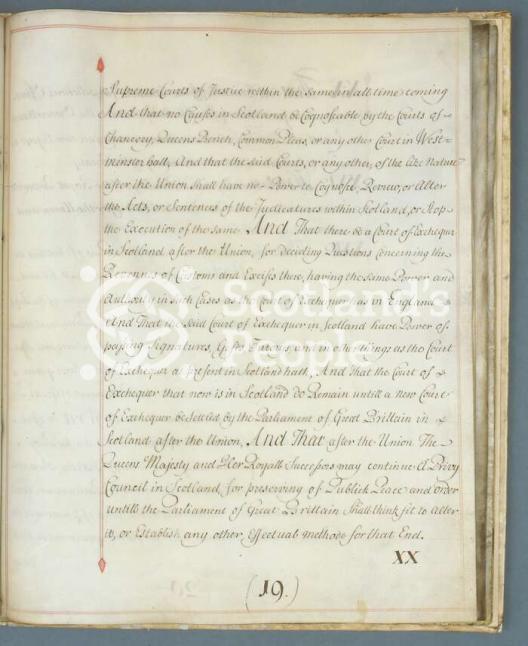 Supreme Courts of Justice within the same in all time coming
And that no Causes in Scotland be Cognoscable by the Courts of
Chancery, Queens Bench, Common Pleas, or any other Court in West=
minster hall, And that the said Courts, or any other, of the like Nature
after the Union shall have no Power to Cognosce, Review, or Alter
the Acts, or Sentences of the Judicatures within Scotland, or Stop
the Execution of the same. And That there be a Court of Exchequer
in Scotland after the Union, for deciding Questions concerning the
Revenues of Customs and Excises there, having the same Power and
Authority in such Cases as the Court of Exchequer has in England
And That the said Court of Exchequer in Scotland have Power of
passing Signatures, Gifts Tutories, and in other things as the Court
of Exchequer at present in Scotland hath, And that the Court of
Exchequer that now is in Scotland do Remain untill a new Court
of Exchequer be Settled by the Parliament of Great Brittain in
Scotland after the Union, And That after the Union The
Queens Majesty and Her Royall Successors may continue A Privy
Council in Scotland, for preserving of Publick Peace and order
untill the Parliament of Great Brittain shall think fit to alter
it, or Establish any other Effectual method for that End.
XX
(19.)
Scotland's
People